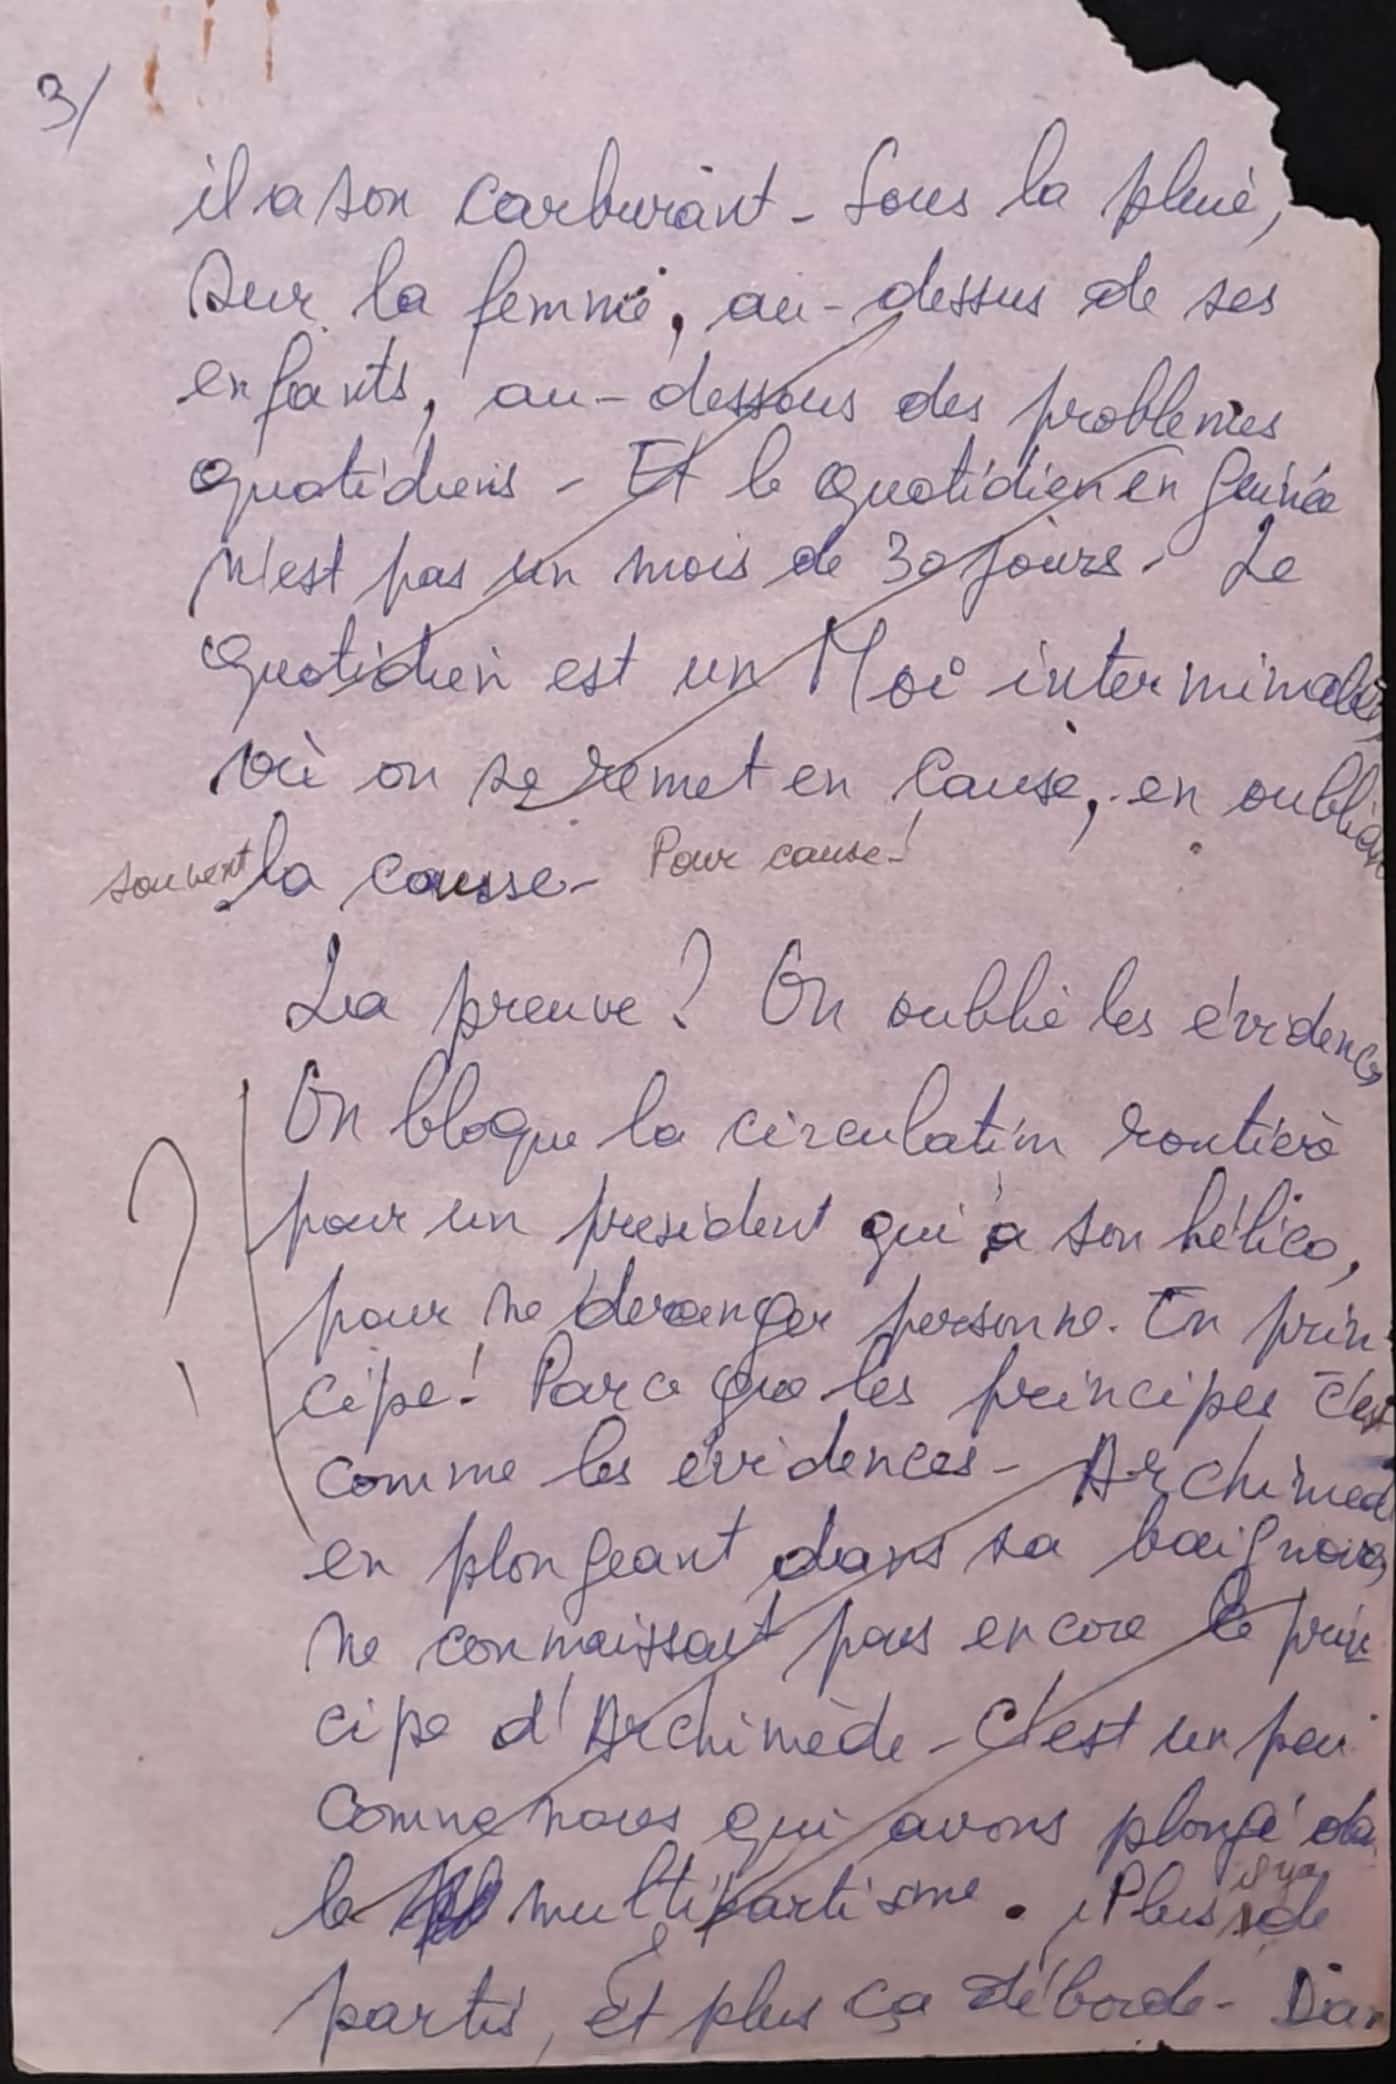 3/
il a son carburant - Sous la pluie,
sur la femme, au-dessus de ses
enfants, au-dessous des problemes
quotidiens - Et le quotidien en Guinée
n'est pas un mois de 30 jours - Le
quotidien est un Moi interminable,
où on se remet en cause, en oubliant
souvent la causse - Pour cause !
La preuve ? On oublie les évidences
On bloque la circulation routière
pour un president qui a son hélico,
pour ne deranger personne. En prin-
cipe ! Parce que les principes c'est
comme les évidences - Archimed
en plongeant dans sa baignoire,
ne connaissait pas encore le prin
cipe d'Archimède - C'est un peu
comme nous qui avons plongé da
le multipartisme. Plus il y a de
partis, et plus ça déborde - Dan
? !